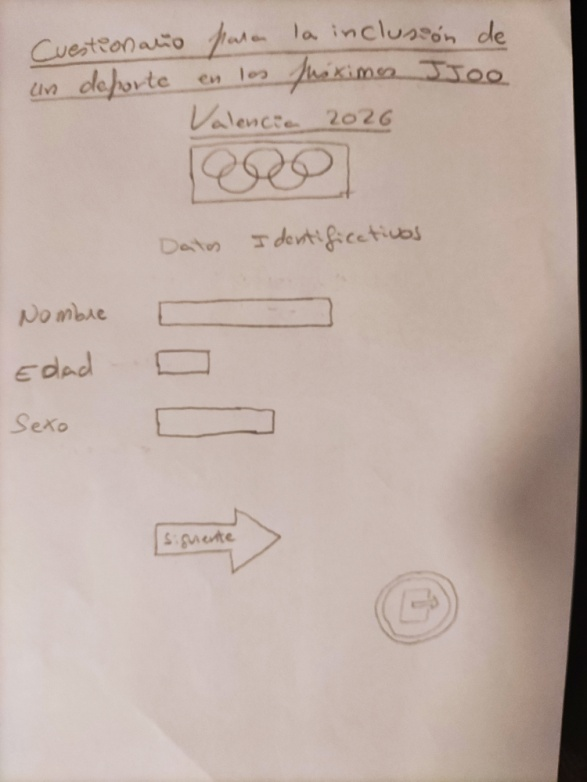 Cuestionario para la inclusión de
un deporte en los próximos JJOO
Valencia 2026
Datos Identificativos
Nombre
Edad
Sexo
Siguiente